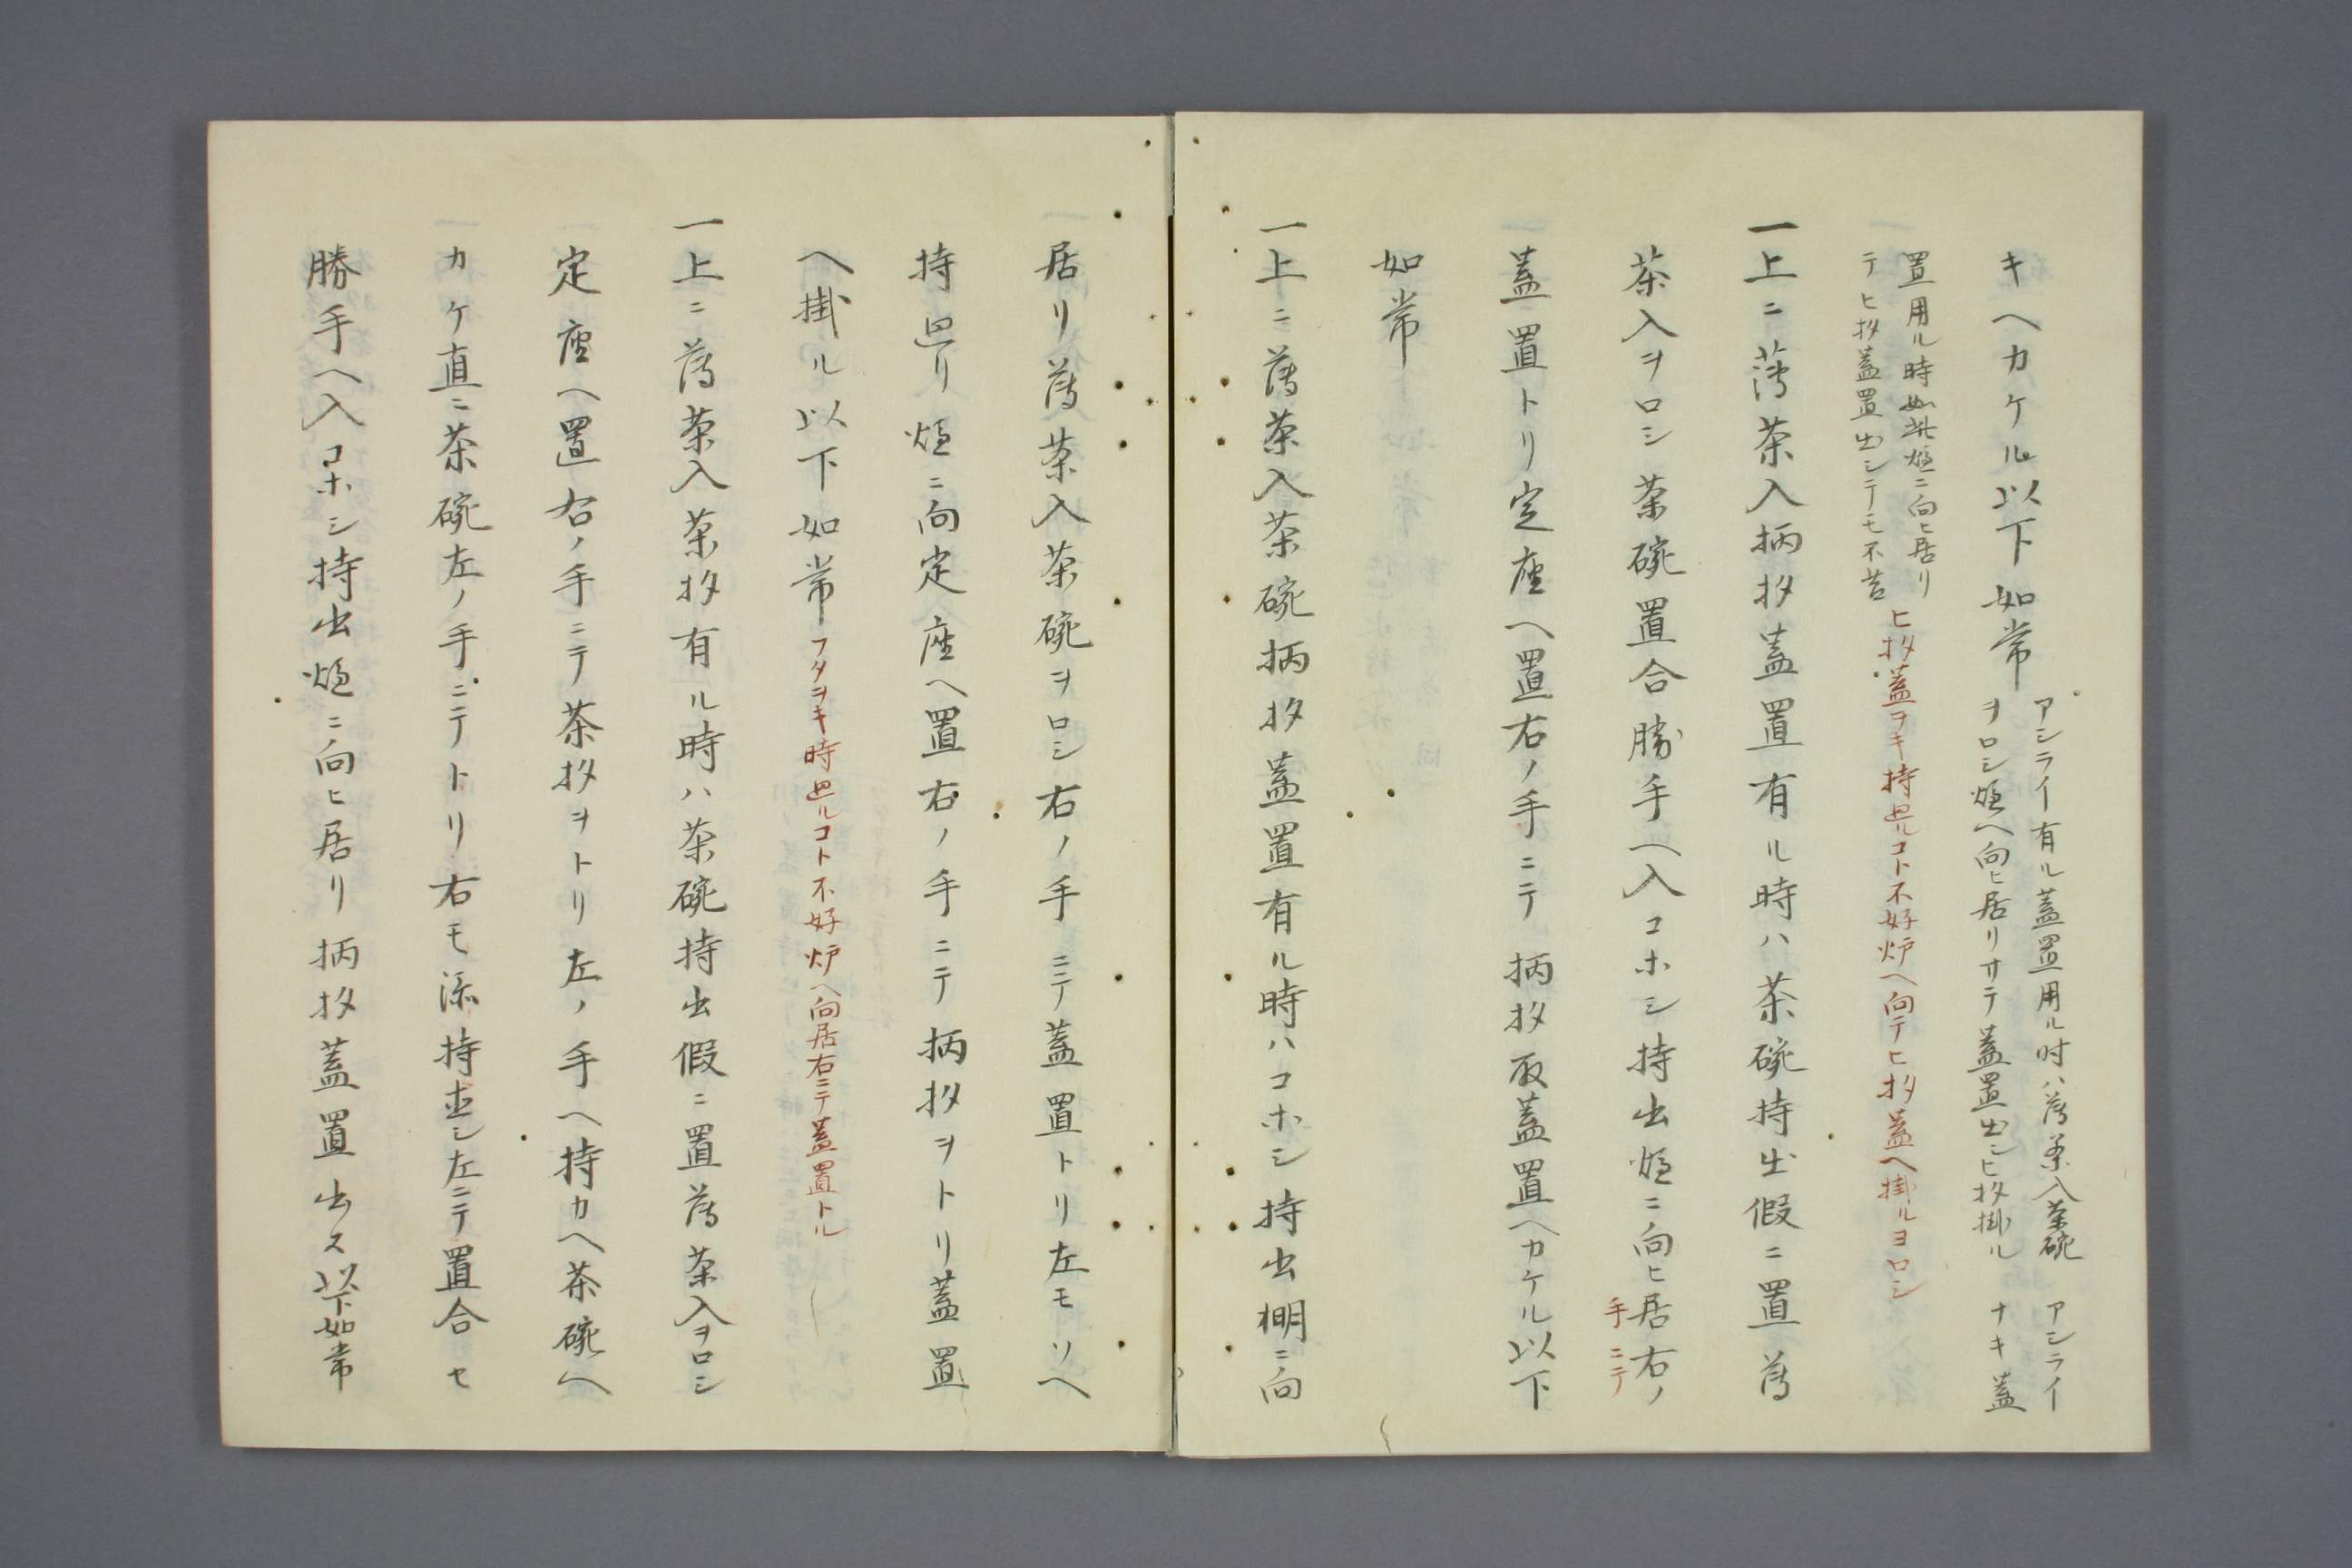 キヘカケル以下如常
アシライ有ル蓋置用ル时ハ薄茶入茶碗
ヲロシ爐ヘ向ヒ居リサテ蓋置出シヒ杓掛ル
アシライ
ナキ蓋
置用ル時如此爐ニ向ヒ居リ
テヒ杓蓋置出シテモ不苦
ヒ杓蓋ヲキ持廻ルコト不好炉ヘ向テヒ杓蓋ヘ掛ルヨロシ
一上ニ薄茶入柄杓蓋置有ル時ハ茶碗持出假ニ置薄
茶入ヲロシ茶碗置合勝手ヘ入コホシ持出爐ニ向ヒ居右ノ
手ニテ
蓋置トリ定座ヘ置右ノ手ニテ柄杓取蓋置ヘカケル以下
如常
一上ニ薄茶入茶碗柄杓蓋置有ル時ハコホシ持出棚ニ向
居リ薄茶入茶碗ヲロシ右ノ手ニテ蓋置トリ左モソヘ
持廻リ爐ニ向定座ヘ置右ノ手ニテ柄杓ヲトリ蓋置
ヘ掛ル以下如常
フタヲキ時廻ルコト不好炉ヘ向居右ニテ蓋置トル
一上ニ薄茶入茶杓有ル時ハ茶碗持出假ニ置薄茶入ヲロシ
定座ヘ置右ノ手ニテ茶杓ヲトリ左ノ手ヘ持カヘ茶碗ヘ
カケ直ニ茶碗左ノ手ニテトリ右モ添持直シ左ニテ置合セ
勝手ヘ入コホシ持出爐ニ向ヒ居リ柄杓蓋置出ス以下如常